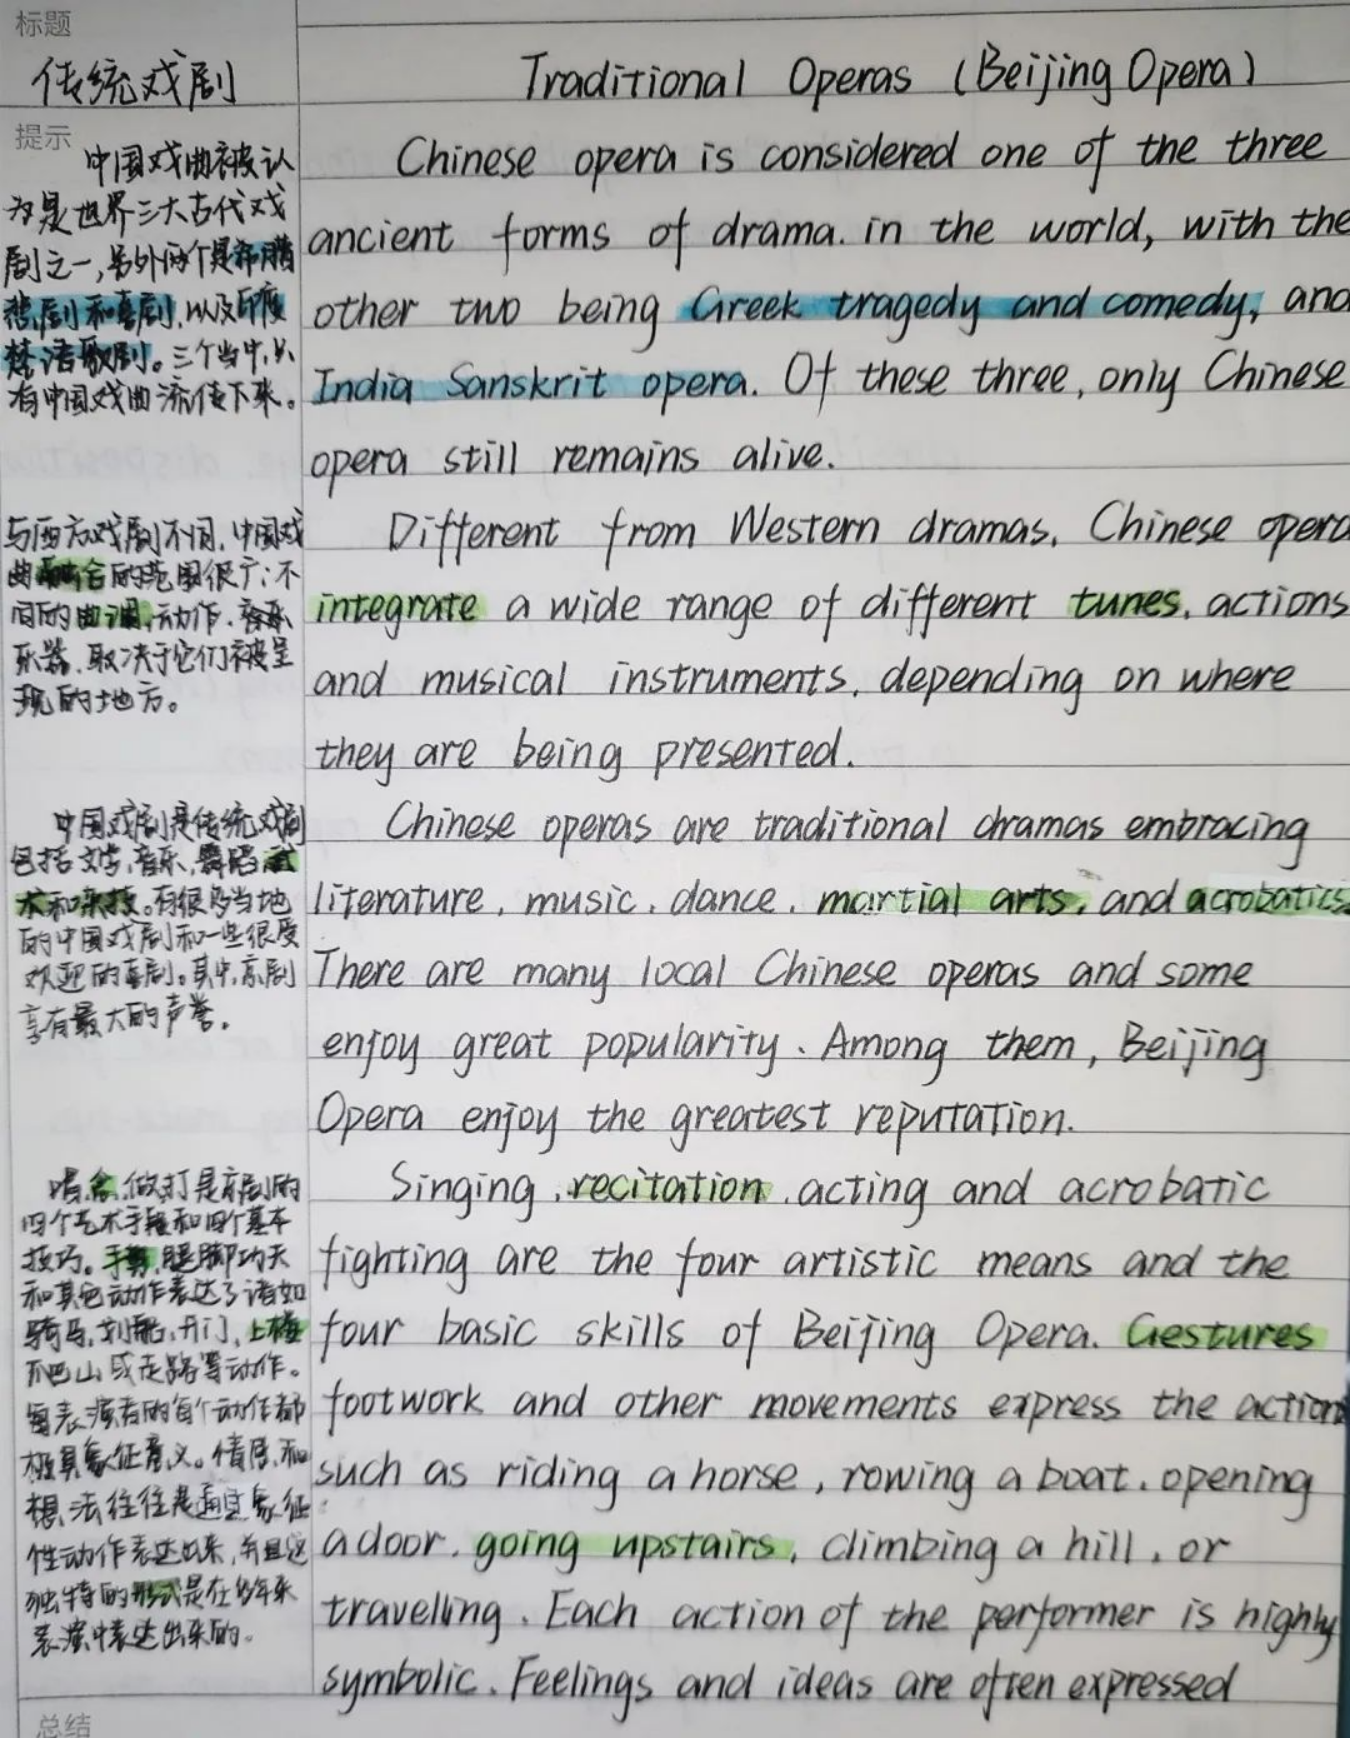 标题
传统戏剧
Traditional Operas (Beijing Opera)
提示
中国戏曲被认
为是世界三大古代戏
剧之一,另外两个是希腊
悲剧和喜剧,以及印度
梵语歌剧。三个当中,只
有中国戏曲流传下来。
Chinese opera is considered one of the three
ancient forms of drama. in the world, with the
other two being Greek tragedy and comedy, and
India Sanskrit opera. Of these three, only Chinese
opera still remains alive.
与西方戏剧不同,中国戏
曲融合的范围很广:不
同的曲调,动作,音乐
乐器,取决于它们被呈
现的地方。
Different from Western dramas, Chinese opera
integrate a wide range of different tunes, actions
and musical instruments, depending on where
they are being presented.
中国戏剧是传统戏剧
包括文学,音乐,舞蹈,武
术和杂技。有很多当地
的中国戏剧和一些很受
欢迎的喜剧。其中,京剧
享有最大的声誉。
Chinese operas are traditional dramas embracing
literature, music, dance, martial arts, and acrobatics.
There are many local Chinese operas and some
enjoy great popularity. Among them, Beijing
Opera enjoy the greatest reputation.
唱,念,做,打是京剧的
四个艺术手段和四个基本
技巧。手势,腿脚功夫
和其他动作表达了诸如
骑马,划船,开门,上楼
爬山或走路等动作。
表演者的每个动作都
极具象征意义。情感,和
想法往往是通过象征
性动作表达出来,并且这
独特的形式是在多年来
表演中表达出来的。
Singing, recitation, acting and acrobatic
fighting are the four artistic means and the
four basic skills of Beijing Opera. Gestures
footwork and other movements express the action
such as riding a horse, rowing a boat, opening
a door, going upstairs, climbing a hill, or
travelling. Each action of the performer is highly
symbolic. Feelings and ideas are often expressed
总结